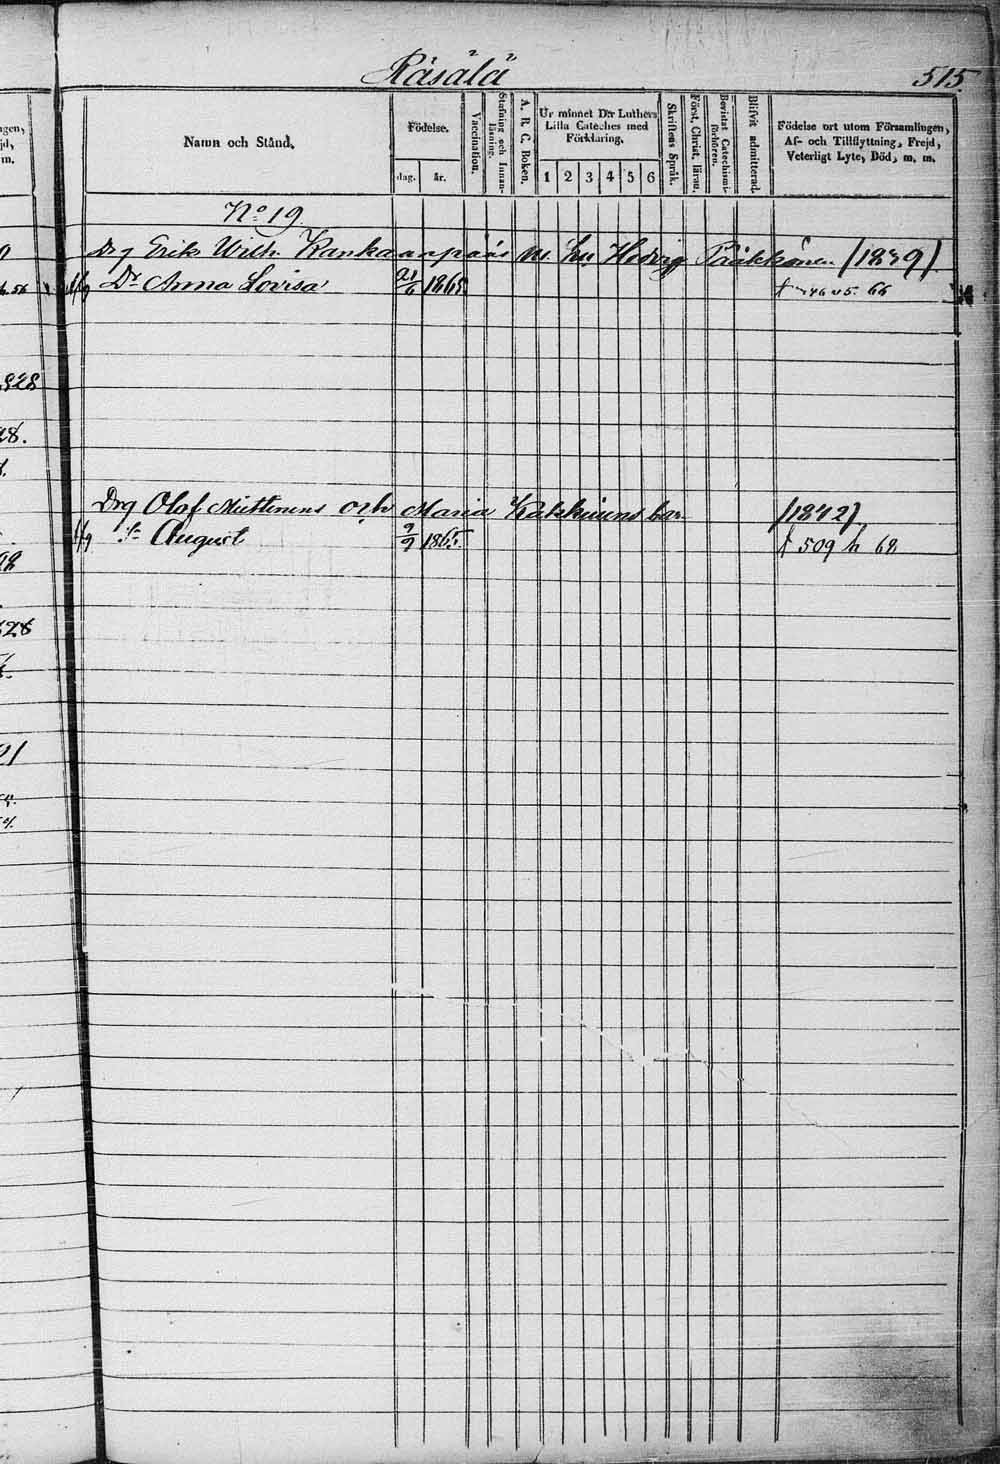 Räsälä
515.
Namn och Stånd.
Födelse.
dag.
år.
Vaccination.
Stafning och Innanläsning.
A. B. C. Boken.
Ur minnet D:r Luthers Lilla Cateches med Förklaring.
1 2 3 4 5 6
Skriftens Språk.
Först. Christ. lärau.
Bevistat Catechismiförhören.
Blifvit admitterad.
Födelse ort utom Församlingen, Af- och Tillflyttning, Frejd, Veterligt Lyte, Död, m. m.
No 19.
Drg Erik Wilh. Kankaanpää's m. hu Hedvig Pääkkönen (1839)
Dr Anna Lovisa 21/6 1865. 66
Drg Olof Miettinens och Maria Kakkinens bar (1842)
Sn August 9/9 1865. 509 h 68
828
28.
98
628
21